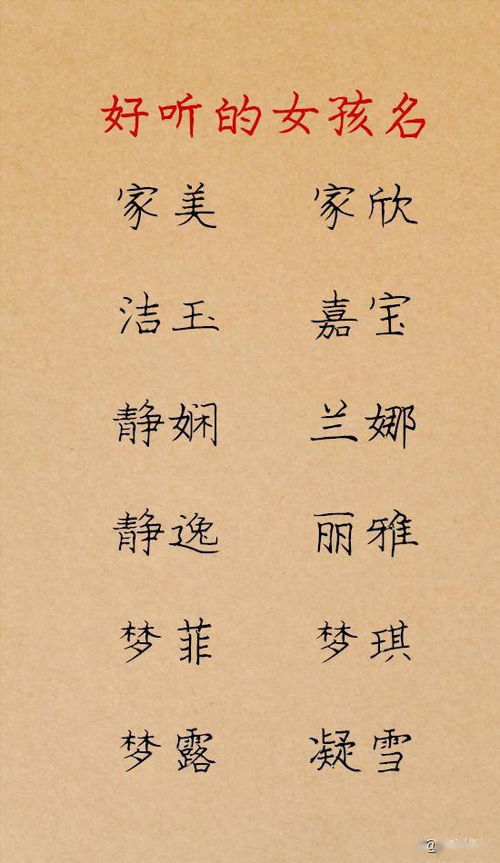 好听的女孩名
家美 家欣
洁玉 嘉宝
静娴 兰娜
静逸 丽雅
梦菲 梦琪
梦露 凝雪